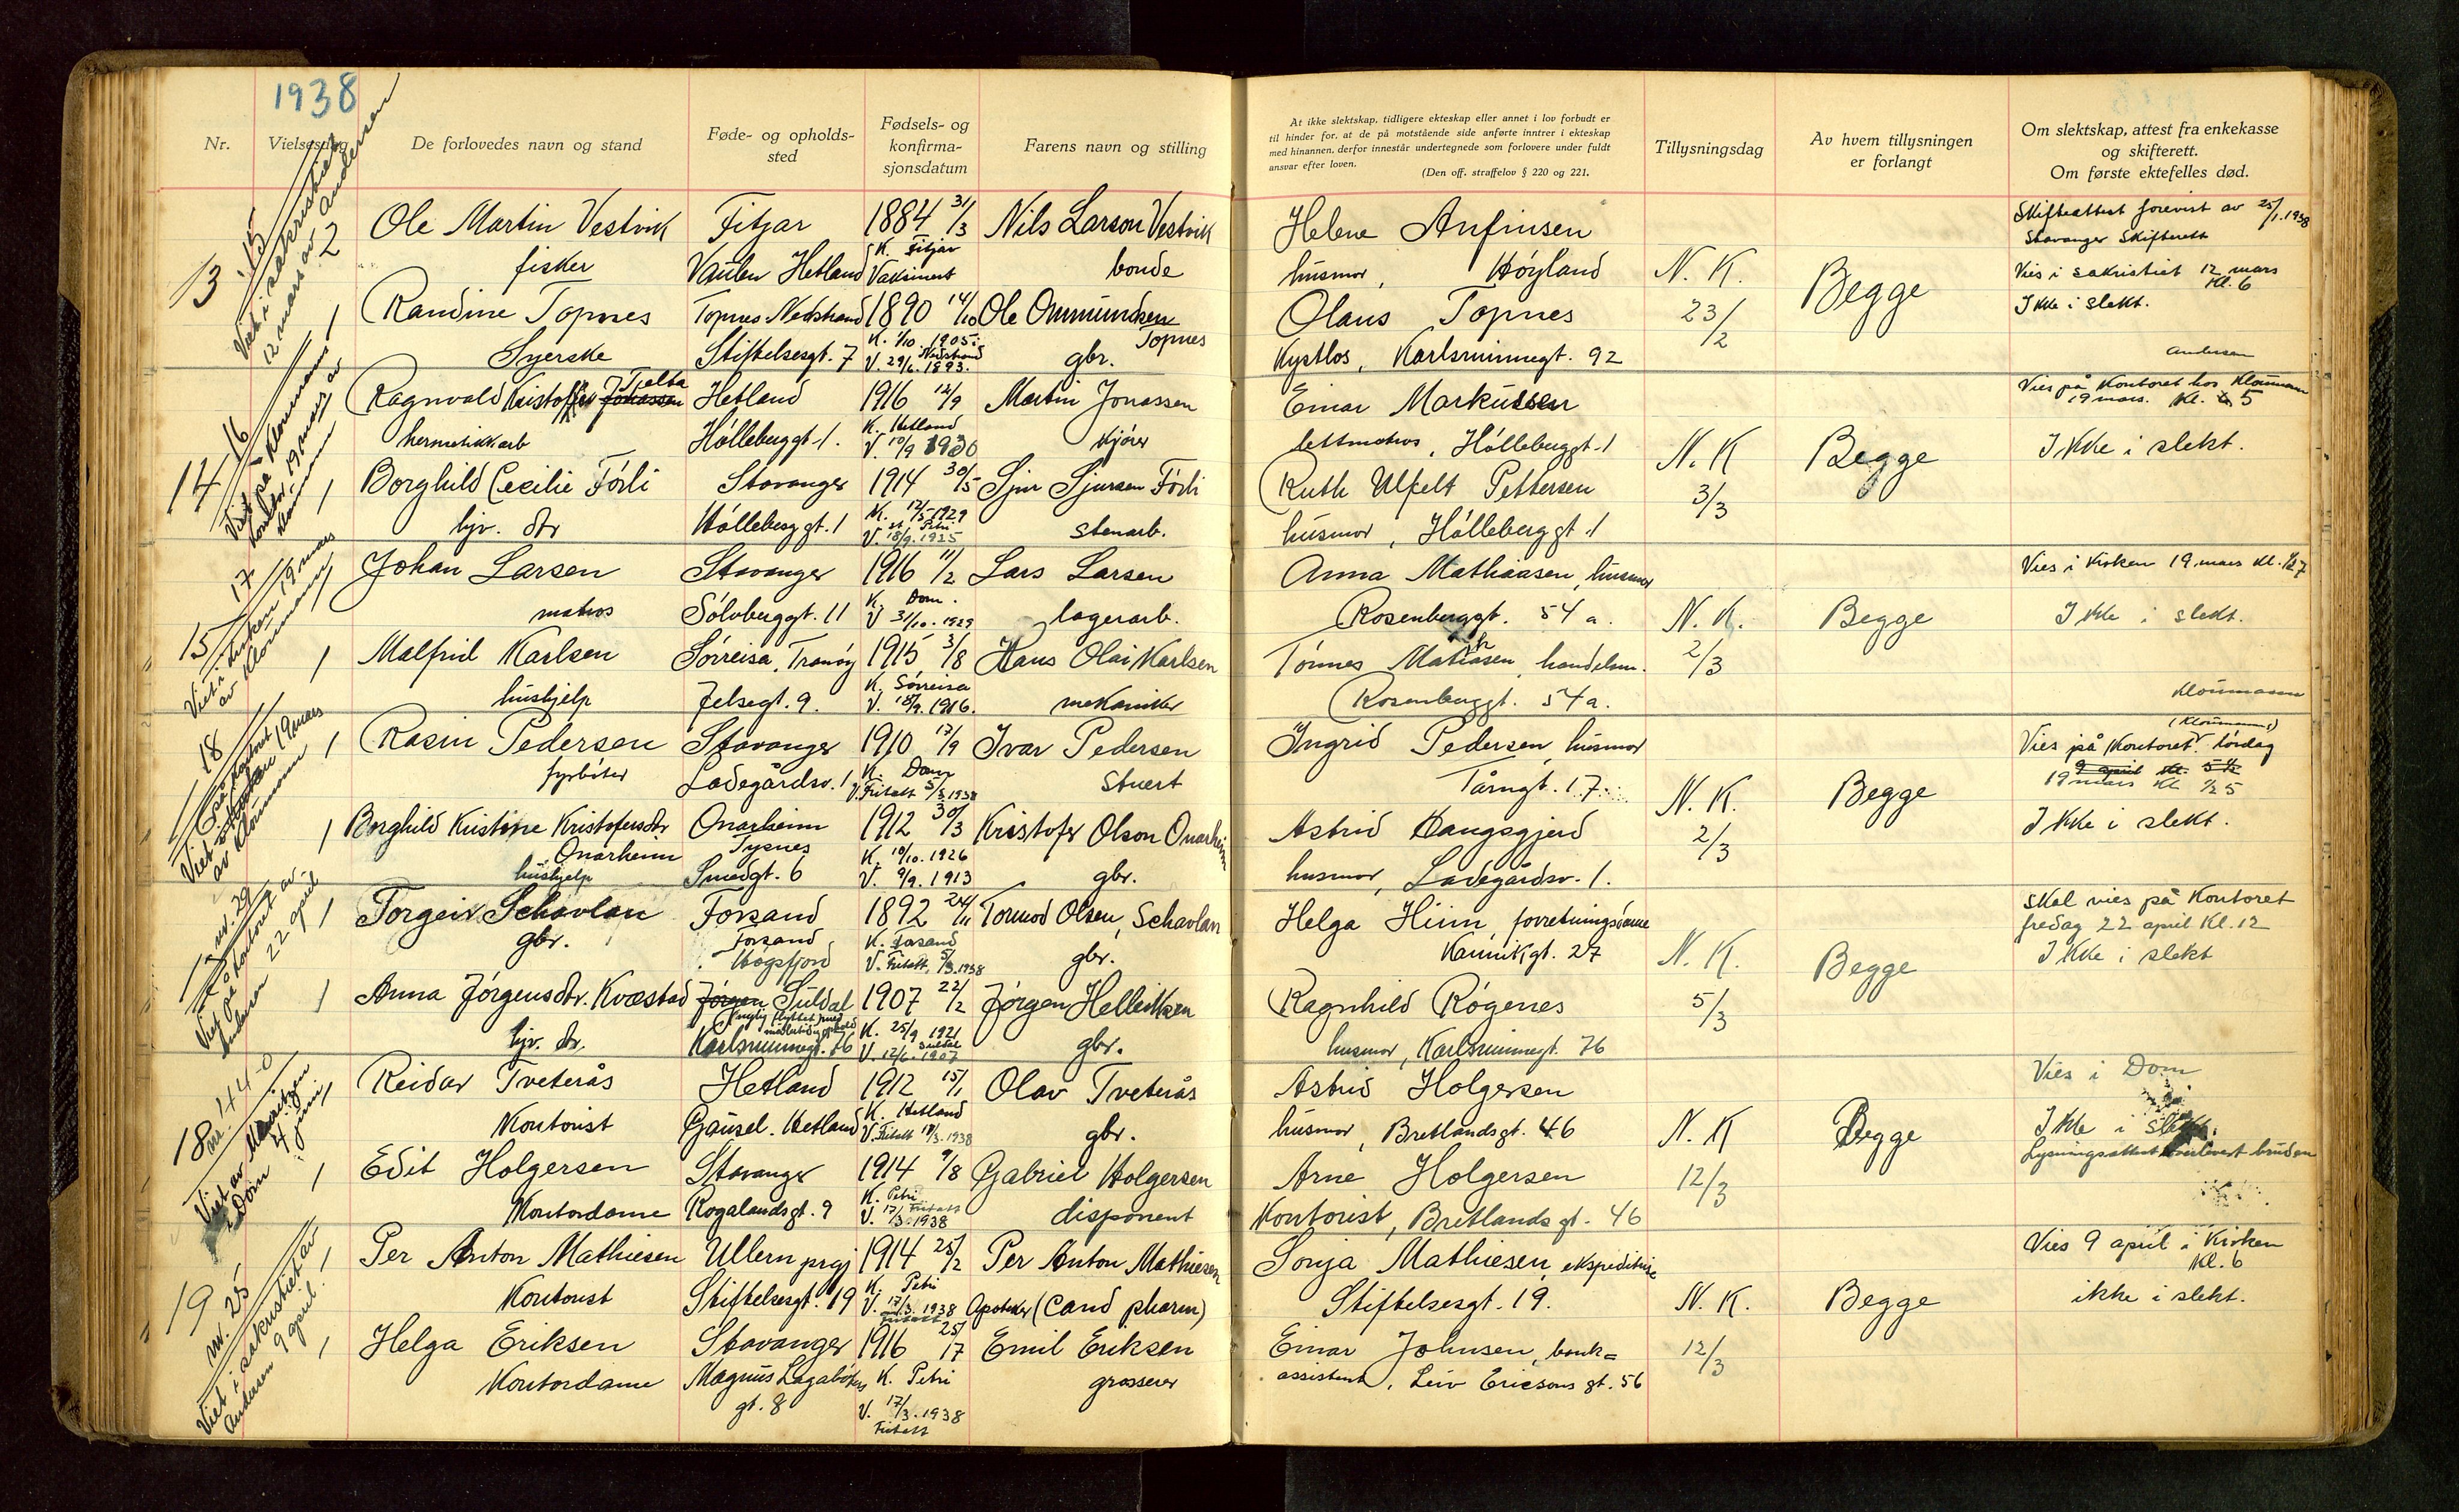 1938
Nr.
Vielsesdag
De forlovedes navn og stand
Føde- og opholds-
sted
Fødsels- og
konfirma-
sjonsdatum
Farens navn og stilling
At ikke slektskap, tidligere ekteskap eller annet i lov forbudt er
til hinder for, at de på motstående side anførte inntrer i ekteskap
med hinannen, derfor innestår undertegnede som forlovere under fuldt
ansvar efter loven.
(Den off. straffelov § 220 og 221.
Tillysningsdag
Av hvem tillysningen
er forlangt
Om slektskap, attest fra enkekasse
og skifterett.
Om første ektefelles død.
13
15
Viet i sakeristiet
12 mars av Andersen
2
Ole Martin Vestvik
fisker
Fitjar
Vaulen Hetland
1884 31/3
K. Fitjar
Vaksinert
Nils Larson Vestvik
bonde
Randine Topnes
Syerske
Topnes Nedstrand
Stiftelsesgt. 7
1890 14/10
K. 1/10 1905
Nedstrand
V. 29/6. 1893.
Ole Ommundsen
Topnes
gbr.
Helene Anfinsen
husmor, Høyland
Olaus Topnes
Kystlos, Karlsminnegt. 92
N. K.
23/2
Begge
Skifteattest forevist av 25/1.1938
Stavanger Skifterett
Vies i sakristiet 12 mars
Kl. 6
Ikke i slekt.
14
16
Viet på Kloumanns
kontor, 19 mars av
Kloumann
Ragnvald Kristoffer Jonassen Tjelta
hermetikkarb
Hetland
Hølleberggt. 1.
1916 12/9
K. Hetland
V. 10/9 1930
Martin Jonassen
kjører
Borghild Cecilie Førli
hjv. dtr
Stavanger
Hølleberggt. 1
1914 30/5
K. 12/5 1929
St. Petri
V. 18/9. 1925
Sjur Sjursen Førli
stenarb.
Einar Markussen
lettmatros, Hølleberggt. 1
Ruth Ulfelt Pettersen
husmor, Hølleberggt. 1
N. K
3/3
Begge
Andersen
Vies på Kontoret hos Kloumann
19 mars. Kl. 5
Ikke i slekt.
15
17
Viet i kirken 19 mars
av Kloumann
Johan Larsen
matros
Stavanger
Sølvberggt. 11
1916 11/2
K. Dom.
V 31/10. 1929
Lars Larsen
lagerarb.
Malfrid Karlsen
hushjelp
Sørreisa, Tranøy
Jelsegt. 9.
1915 3/8
K. Sørreisa
V. 18/9. 1916.
Hans Olai Karlsen
mekaniker
Anna Mathiasen, husmor
Rosenberggt. 54 a.
Tønnes Mathiasen, handelsm.
Rosenberggt. 54 a.
N. K.
2/3
Begge
Vies i Kirken 19 mars Kl. 1/2 7
Ikke i slekt.
18
Viet på kontoret
i kirken 19 mars
av Kloumann
Rasin Pedersen
fyrbøter
Stavanger
Ladegårdsv. 1
1910 17/9
K. Dom
V. Fritatt 5/3.1938
Ivar Pedersen
Stuert
Borghild Kristine Kristofersdtr
Onarheim
hushjelp
Onarheim
Tysnes
Smedgt. 6
1912 30/3
K. 10/10. 1926
V. 9/9. 1913
Kristofer Olson Onarheim
gbr.
Ingrid Pedersen, husmor
Tårngt. 17
Astrid Haugsgjerd
husmor, Ladegårdsv. 1.
N. K.
2/3
Begge
Kloumann
(Kloumann)
Vies på Kontoret lørdag
9 april Kl. 5 1/2
19 mars Kl 1/2 5
Ikke i slekt.
17
nr. 29
Viet på kontoret av
Andersen 22 april
Torgeir Schavlan
gbr.
Forsand
Forsand
Høgsfjord
1892 24/11
K. Forsand
V. Fritatt, 5/3.1938
Tormod Olsen, Schavlan
gbr.
Anna Jørgensdtr. Kvæstad
hjv. dtr.
Jørgen Suldal
Karlsminnegt. 76
1907 22/2
K. 25/9 1921
Suldal
V. 12/6. 1907
Jørgen Helleiksen
gbr.
Helga Hiim, forretningsdame
Kannikgt. 27
Ragnhild Røgenes
husmor, Karlsminnegt. 76
N. K.
5/3
Begge
Skal vies på Kontoret
fredag 22 april Kl. 12
Ikke i slekt
18
nr. 44-0
Viet av Mauritzen
i Dom 4 juni
Reidar Tveterås
Kontorist
Hetland
Gausel. Hetland
1912 15/1
K. Hetland
V. Fritatt 18/3.1938
Olav Tveterås
gbr.
Edit Holgersen
Kontordame
Stavanger
Rogalandsgt. 9
1914 9/8
K. Petri
V. 17/3.1938 Fritatt
Gabriel Holgersen
disponent
Astrid Holgersen
husmor, Bretlandsgt. 46
Arne Holgersen
Kontorist, Bretlandsgt. 46
N. K
12/3
Begge
Vies i Dom
Ikke i slekt.
Lysningsattest overlevert bruden
19
nr. 25
Viet i sakristiet av
Andersen 9 april.
Per Anton Mathiesen
Kontorist
Ullern prgj
Stiftelsesgt. 19
1914 25/2
K. Petri
V. 17/3. 1938
Fritatt
Per Anton Mathiesen
Apoteker (Cand pharm)
Helga Eriksen
Kontordame
Stavanger
Magnus Lagabøters
gt. 8
1916 25/17
K. Petri
V. 17/3.1938
Fritatt
Emil Eriksen
grosserer
Sonja Mathiesen, ekspeditrise
Stiftelsesgt. 19.
Einar Johnsen, bank=
assistent, Leiv Ericsons gt. 56
N. K.
12/3
Begge
Vies 9 april i Kirken
Kl. 6
ikke i slekt.